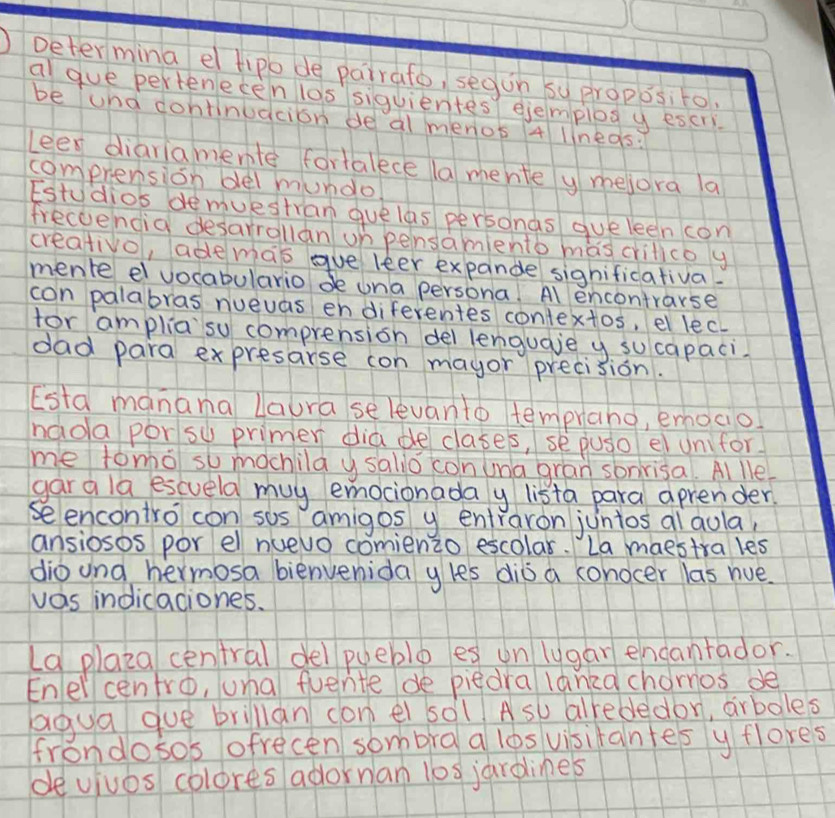 ) Determina el tipo de párrafo, según su propósito,
al que pertenecen los siguientes ejemplos y escri-
be una continuación de al menos 4 líneas:
Leer diariamente fortalece la mente y mejora la
comprensión del mundo.
Estudios demuestran que las personas que leen con
frecuencia desarrollan un pensamiento más crítico y
creativo, además que leer expande significativa-
mente el vocabulario de una persona. Al encontrarse
con palabras nuevas en diferentes contextos, el lec-
tor amplía su comprensión del lenguaje y su capaci-
dad para expresarse con mayor precisión.
Esta mañana Laura se levanto temprano, emocio-
nada por su primer dia de clases, se puso el unifor-
me tomó su mochila y salió con una gran sonrisa. Al lle-
gar a la escuela muy emocionada y lista para aprender.
se encontró con sus amigos y entraron juntos al aula,
ansiosos por el nuevo comienzo escolar. La maestra les
dio una hermosa bienvenida y les dió a conocer las nue-
vas indicaciones.
La plaza central del pueblo es un lugar encantador.
En el centro, una fuente de piedra lanza chorros de
agua que brillan con el sol. A su alrededor, árboles
frondosos ofrecen sombra a los visitantes y flores
de vivos colores adornan los jardines